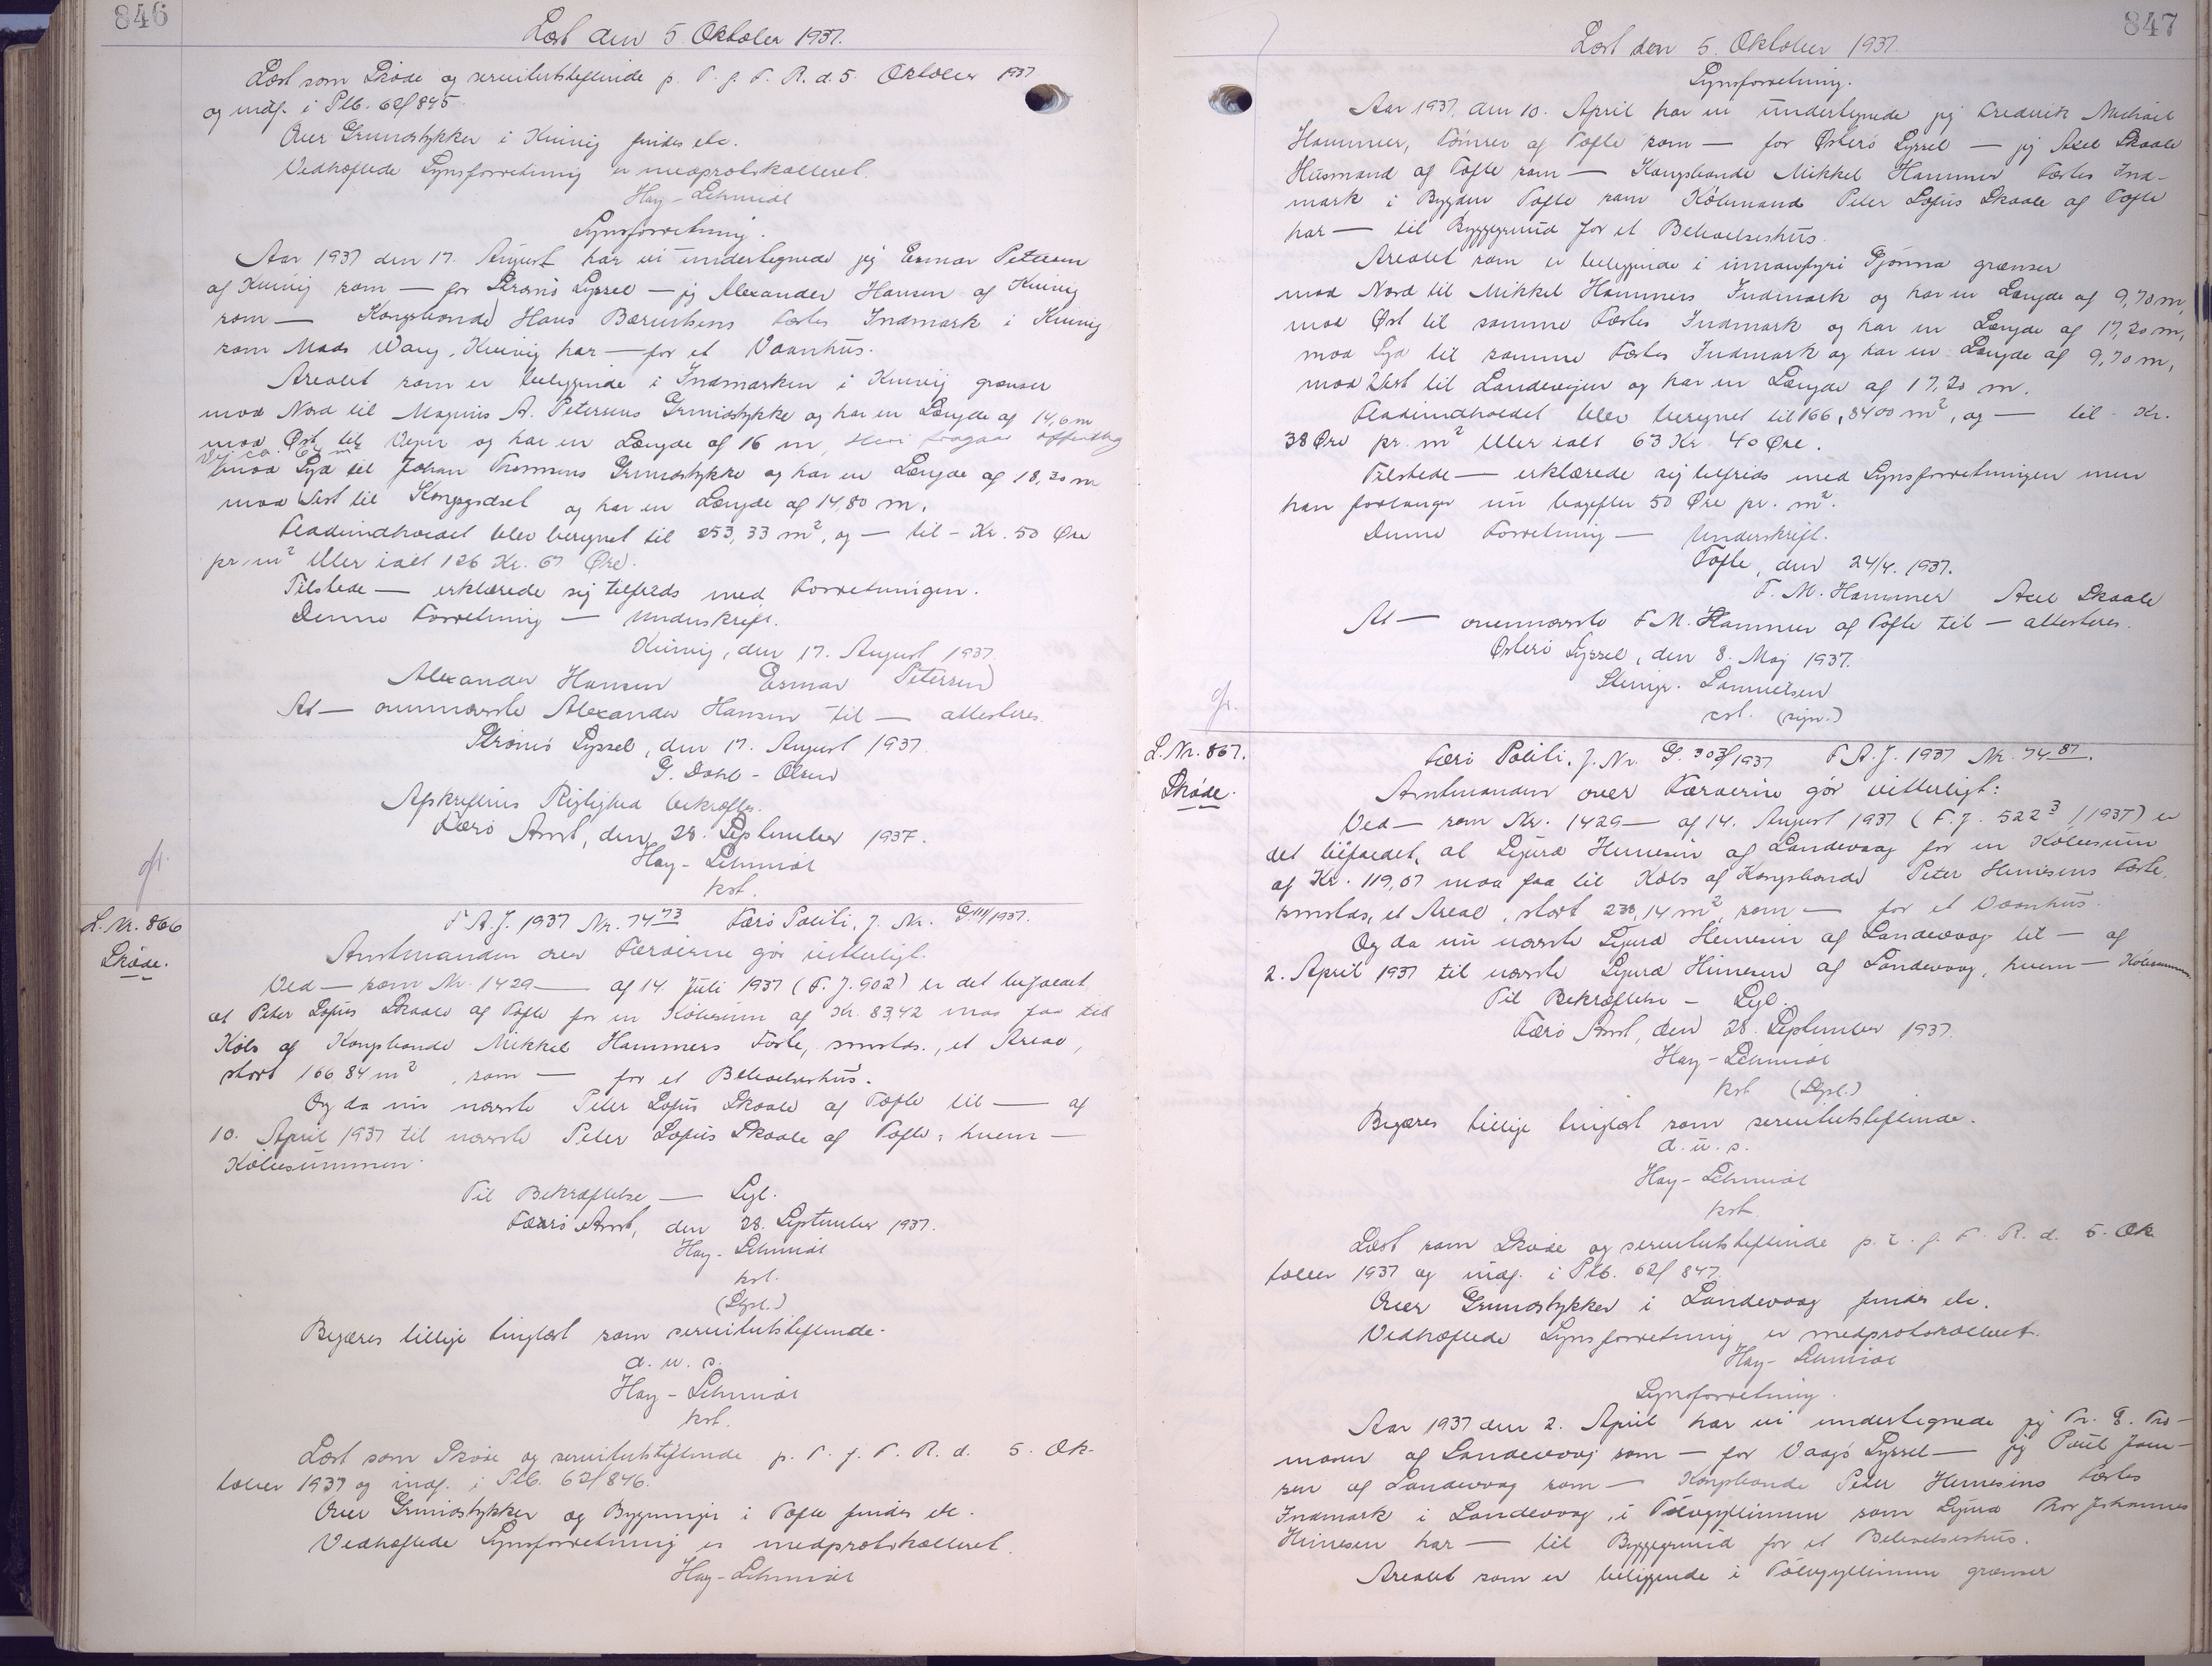 846
Læst den 5. Oktober 1937.
Læst som Skøde og servitutstiftende p. T. f. F. R. d. 5. Oktober 1937
og indf. i Ptb. 62/845
Over Grundstykker i Kvivig findes etc.
Vedhæftede Synsforretning er medprotokolleret.
Hay-Schmidt
Synsforretning.
Aar 1937 den 17. August har vi undertegnede jeg Esmar Petersen
af Kvivig som — for Strømø Syssel — jeg Alexander Hansen af Kvivig
som — Kongsbonde Hans Bærentsens Fæstes Indmark i Kvivig
som Mads Wang, Kvivig har — for et Vaanhus.
Arealet som er beliggende i Indmarken i Kvivig grænser
mod Nord til Magnus A. Petersens Grundstykke og har en Længde af 14,6 m
mod Øst til Vejen og har en Længde af 16 m, Heri fragaar offentlig
Vej ca. 64 m²
mod Syd til Johan Thomsens Grundstykke og har en Længde af 18,30 m
mod Vest til Kongsgodset og har en Længde af 14,80 m.
Fladeindholdet blev beregnet til 253,33 m², og — til - Kr. 50 Øre
pr. m² eller ialt 126 Kr. 67 Øre.
Tilstede — erklærede sig tilfreds med Forretningen.
Denne Forretning — Underskrift.
Kvivig, den 17. August 1937.
Alexander Hansen Esmar Petersen
At — ovennævnte Alexander Hansen til — attesteres.
Strømø Syssel, den 17. August 1937.
G. Dahl-Olsen
Afskriftens Rigtighed bekræftes.
Færø Amt, den 28. September 1937.
Hay-Schmidt
kst.
L. Nr. 866
Skøde.
F.A.J. 1937 Nr. 74 73 Færø Politi, J. Nr. G. 111/1937.
Amtmanden over Færøerne gør vitterligt.
Ved — som Nr. 1429 — af 14. Juli 1937 (F. J. 902) er det tilfaldet,
at Peter Sofus Skaale af Tofte for en Købesum af Kr. 83,42 maa faa til
Købs af Kongsbonde Mikkel Hammers Fæste, smstds., et Areal,
stort 166,84 m², som — for et Beboelseshus.
Og da nu nævnte Peter Sofus Skaale af Tofte til — af
10. April 1937 til nævnte Peter Sofus Skaale af Tofte, hvem —
Købesummen.
Til Bekræftelse — Sgl.
Færø Amt, den 28. September 1937.
Hay-Schmidt
kst.
(Sgl.)
Begæres tillige tinglæst som servitutstiftende.
d. u. s.
Hay-Schmidt
kst.
Læst som Skøde og servitutstiftende p. T. f. F. R. d. 5. Ok-
tober 1937 og indf. i Ptb. 62/846.
Over Grundstykker og Bygninger i Tofte findes etc.
Vedhæftede Synsforretning er medprotokolleret.
Hay-Schmidt
847
Læst den 5. Oktober 1937.
Synsforretning.
Aar 1937, den 10. April har vi undertegnede jeg Frederik Michael
Hammer, Tømrer af Tofte som — for Østerø Syssel — jeg Axel Skaale
Husmand af Tofte som — Kongsbonde Mikkel Hammer Fæstes Ind-
mark i Bygden Tofte som Købmand Peter Sofus Skaale af Tofte
har — til Byggegrund for et Beboelseshus.
Arealet som er beliggende i innanfyri Gjónna grænser
mod Nord til Mikkel Hammers Indmark og har en Længde af 9,70 m,
mod Øst til samme Fæstes Indmark og har en Længde af 17,20 m,
mod Syd til samme Fæstes Indmark og har en Længde af 9,70 m,
mod Vest til Landevejen og har en Længde af 17,20 m.
Fladeindholdet blev beregnet til 166,8400 m², og — til - Kr.
38 Øre pr. m² eller ialt 63 Kr. 40 Øre.
Tilstede — erklærede sig tilfreds med Synsforretningen men
han forlanger nu bagefter 50 Øre pr. m².
Denne Forretning — Underskrift.
Tofte, den 24/4. 1937.
F. M. Hammer Axel Skaale
At — ovennævnte F. M. Hammer af Tofte til — attesteres.
Østerø Syssel, den 8. Maj 1937.
Steingr. Samuelsen
cst. (sign.)
L. Nr. 867.
Skøde.
Færø Politi, J. Nr. G. 303/1937 F.A.J. 1937 Nr. 74 87.
Amtmanden over Færøerne gør vitterligt:
Ved — som Nr. 1429 — af 14. August 1937 (F. J. 522 3 / 1937) er
det tilfaldet, at Sjurd Heinesen af Sandevaag for en Købesum
af Kr. 119,07 maa faa til Købs af Kongsbonde Peter Heinesens Fæste,
smstds., et Areal, stort 238,14 m², som — for et Vaanhus.
Og da nu nævnte Sjurd Heinesen af Sandevaag til — af
2. April 1937 til nævnte Sjurd Heinesen af Sandevaag, hvem — Købesummen
Til Bekræftelse — Sgl.
Færø Amt, den 28. September 1937.
Hay-Schmidt
kst (Sgl.)
Begæres tillige tinglæst som servitutstiftende.
d. u. s.
Hay-Schmidt
kst.
Læst som Skøde og servitutstiftende p. T. f. F. R. d. 5. Ok
tober 1937 og indf. i Ptb. 62/847.
Over Grundstykker i Sandevaag findes etc.
Vedhæftede Synsforretning er medprotokolleret.
Hay-Schmidt
Synsforretning.
Aar 1937 den 2. April har vi undertegnede jeg
af Sandevaag som — for Vaagø Syssel — jeg Poul Jom-
sen af Sandevaag som — Kongsbonde Peter Heinesens Fæstes
Indmark i Sandevaag, i som Sjurd Thor Johannes
Heinesen har — til Byggegrund for et Beboelseshus.
Arealet som er beliggende i grænser